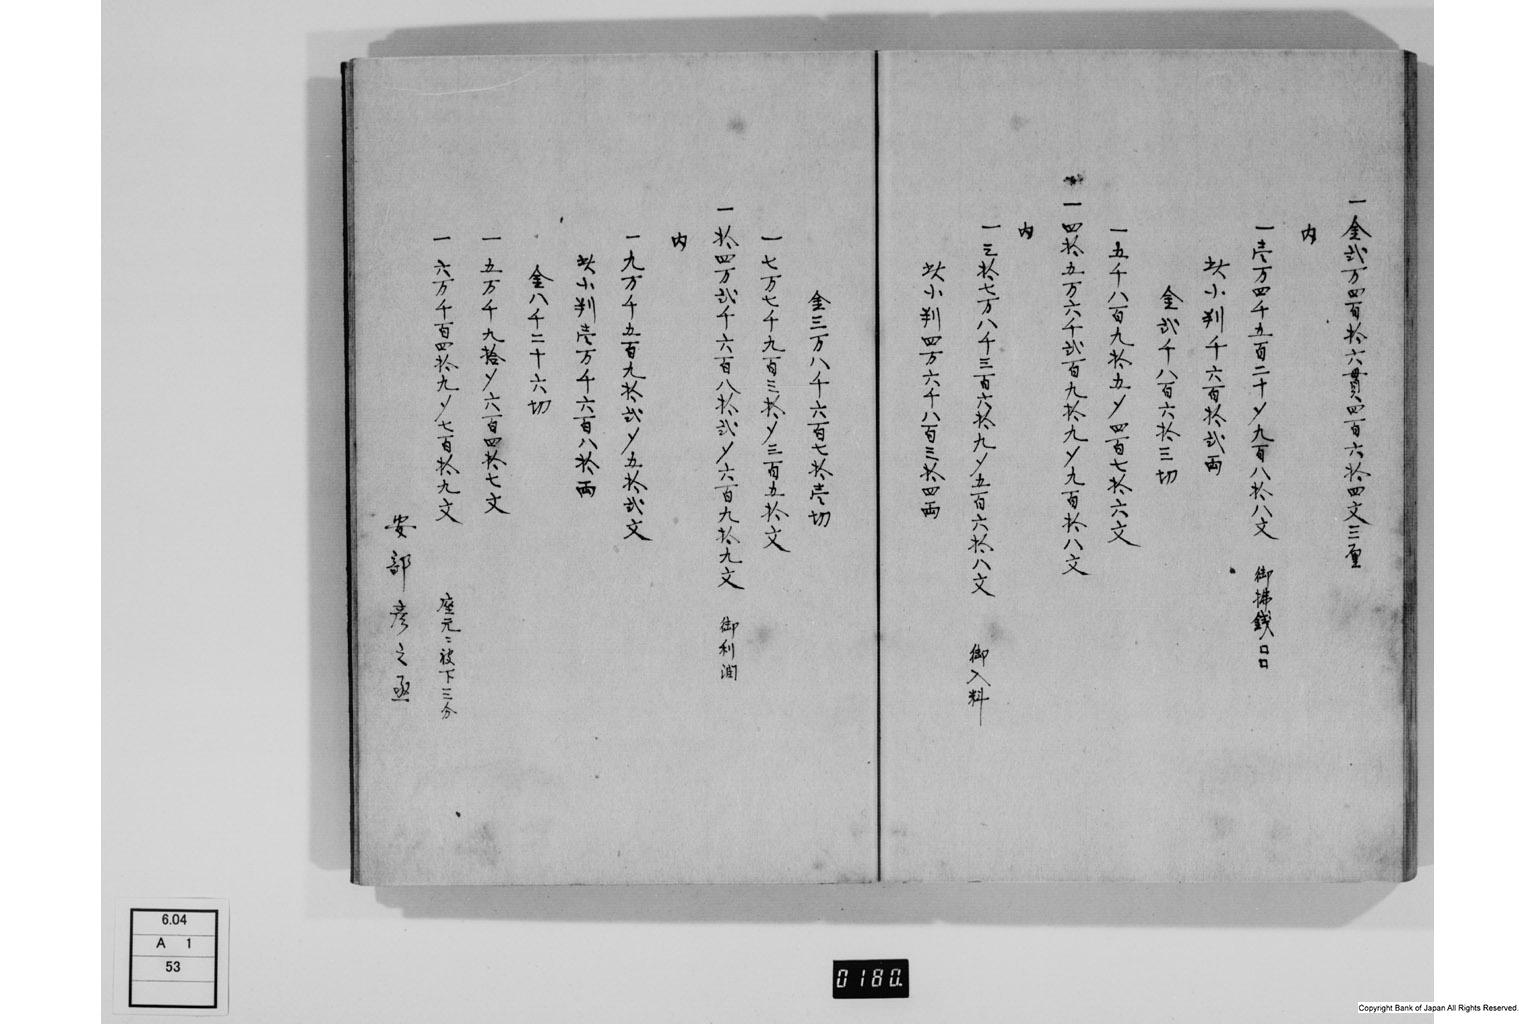 一金弐万四百拾六貫四百六拾四文三厘
内
一壱万四千五百二十〆九百八拾八文 御払銭□□
此小判千六百拾弐両
金弐千八百六拾三切
一五千八百九拾五〆四百七拾六文
一四拾五万六千弐百九拾九〆九百拾八文
内
一三拾七万八千三百六拾九〆五百六拾八文 御入料
此小判四万六千八百三拾四両
金三万八千六百七拾壱切
一七万七千九百三拾〆三百五拾文
一拾四万弐千六百八拾弐〆六百九拾九文 御利潤
内
一九万千五百九拾弐〆五拾弐文
此小判壱万千六百八拾両
金八千二十六切
一五万千九拾〆六百四拾七文
一六万千百四拾九〆七百拾九文 座元ニ被下三分
安部彦之丞
6.04
A 1
53
0180
Copyright Bank of Japan All Rights Reserved.